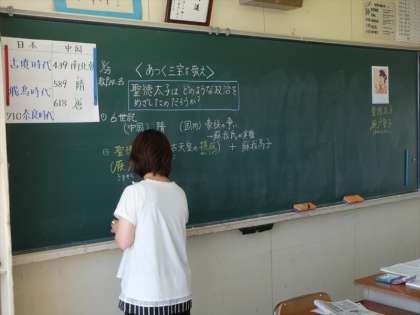 日本 中国
古墳時代 439 南北朝
589 隋
飛鳥時代
618 唐
710 奈良時代
<あつく三宝を敬え>
聖徳太子は どのような政治を
めざしたのだろうか?
① 6世紀
(中国) 隋 (国内) 豪族の争い
② 聖徳 古天皇の摂政) + 蘇我馬子
聖徳太子